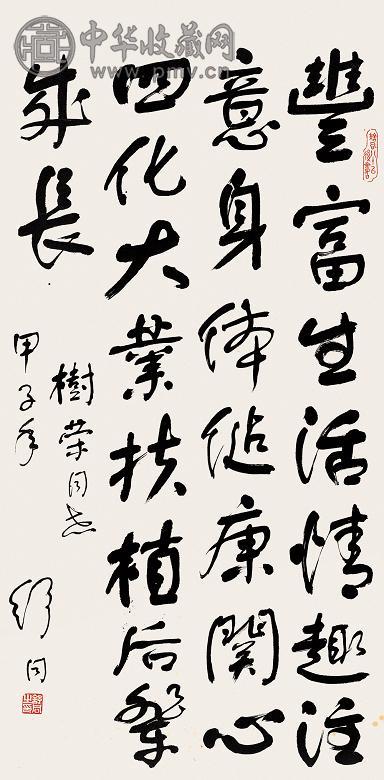 中华收藏网
www.pmv.cn
豐富生活情趣注
意身体健康關心
四化大業扶植后輩
成長
樹荣同志
甲子年
舒同